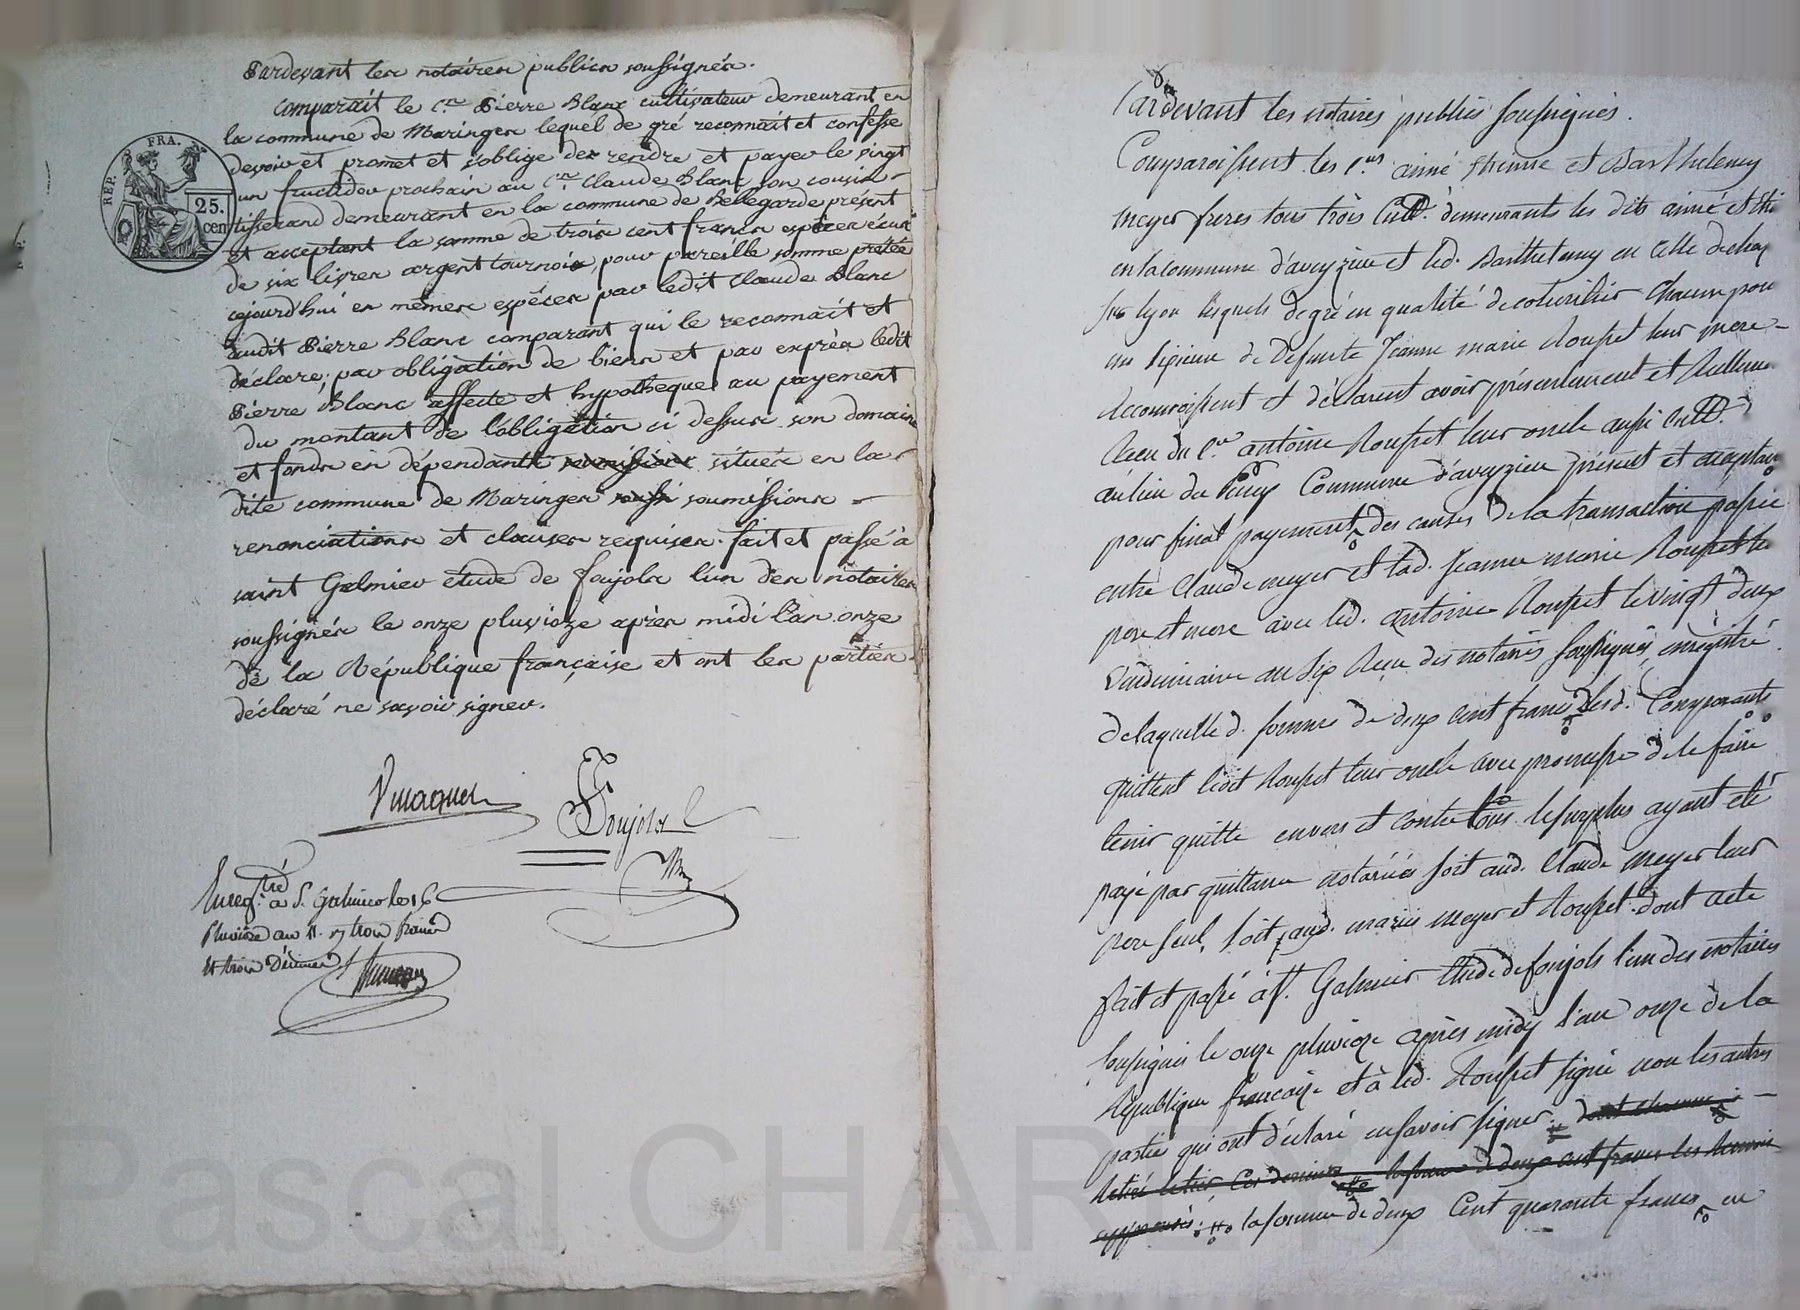 Pardevant les notaires publics soussignés.
Comparait le C.en Pierre Blanc cultivateur demeurant en
la commune de Maringes lequel de gré reconnait et confesse
devoir et promet et s'oblige de rendre et payer le vingt
un fructidor prochain au C.en Claude Blanc son cousin
tisserand demeurant en la commune de Bellegarde présent
et acceptant la somme de trois cent francs espèces écus
de six livres argent tournois, pour pareille somme prêtée
cejourd'hui en mêmes espèces par ledit Claude Blanc
audit Pierre Blanc comparant qui le reconnait et
déclare; par obligation de biens et par exprès ledit
Pierre Blanc affecte et hypotheque au payement
du montant de l'obligation ci dessus son domaine
et fonds en dépendants situés en la
dite commune de Maringes soumissions
renonciations et clauses requises. fait et passé à
saint Galmier étude de foujols l'un des notaires
soussignés le onze pluvioze après midi l'an onze
de la République française et ont les parties
déclaré ne savoir signer.
REP. FRA.
25.
cen
Foujols
Enreg.tré à S. Galmier le 16
Pluviose an 11. rç trois francs
et trois Décimes
Pardevant les notaires publics soussignés.
Comparoissent les C.ens aimé etienne et Barthelemy
meyer freres tous trois Cult. demeurants les dits aimé et
en la Commune d'aveyzieu et led. Barthelemy en celle de
lyon lesquels de gré en qualité de cohéritiers chacun pour
un sixieme de defunte Jeanne marie Rousset leur mere
Reconnoissent et déclarent avoir présentement et
Reçu du C.en antoine Rousset leur oncle aussi Cult.
au lieu du Commune d'aveyzieu présent et acceptant
pour final payement des causes de la transaction passée
entre Claude meyer et lad. Jeanne marie Rousset
pere et mere avec led. antoine Rousset le vingt deux
Vendemiaire an six Reçu des notaires soussignés enregistré
de laquelle d. somme de deux cent francs lesd. Comparants
quittent ledit Rousset leur oncle avec promesse de le faire
tenir quitte envers et contre tous le surplus ayant été
payé par quittance notariées soit aud. Claude meyer leur
pere seul, soit aud. mariés meyer et Rousset. dont acte
fait et passé à St. Galmier Etude de foujols l'un des notaires
soussignés le onze pluvioze après midy l'an onze de la
République française et à led. Rousset signé non les autres
parties qui ont déclaré ne savoir signer.
la somme de deux Cent quarante francs en
Pascal CHAREYRON